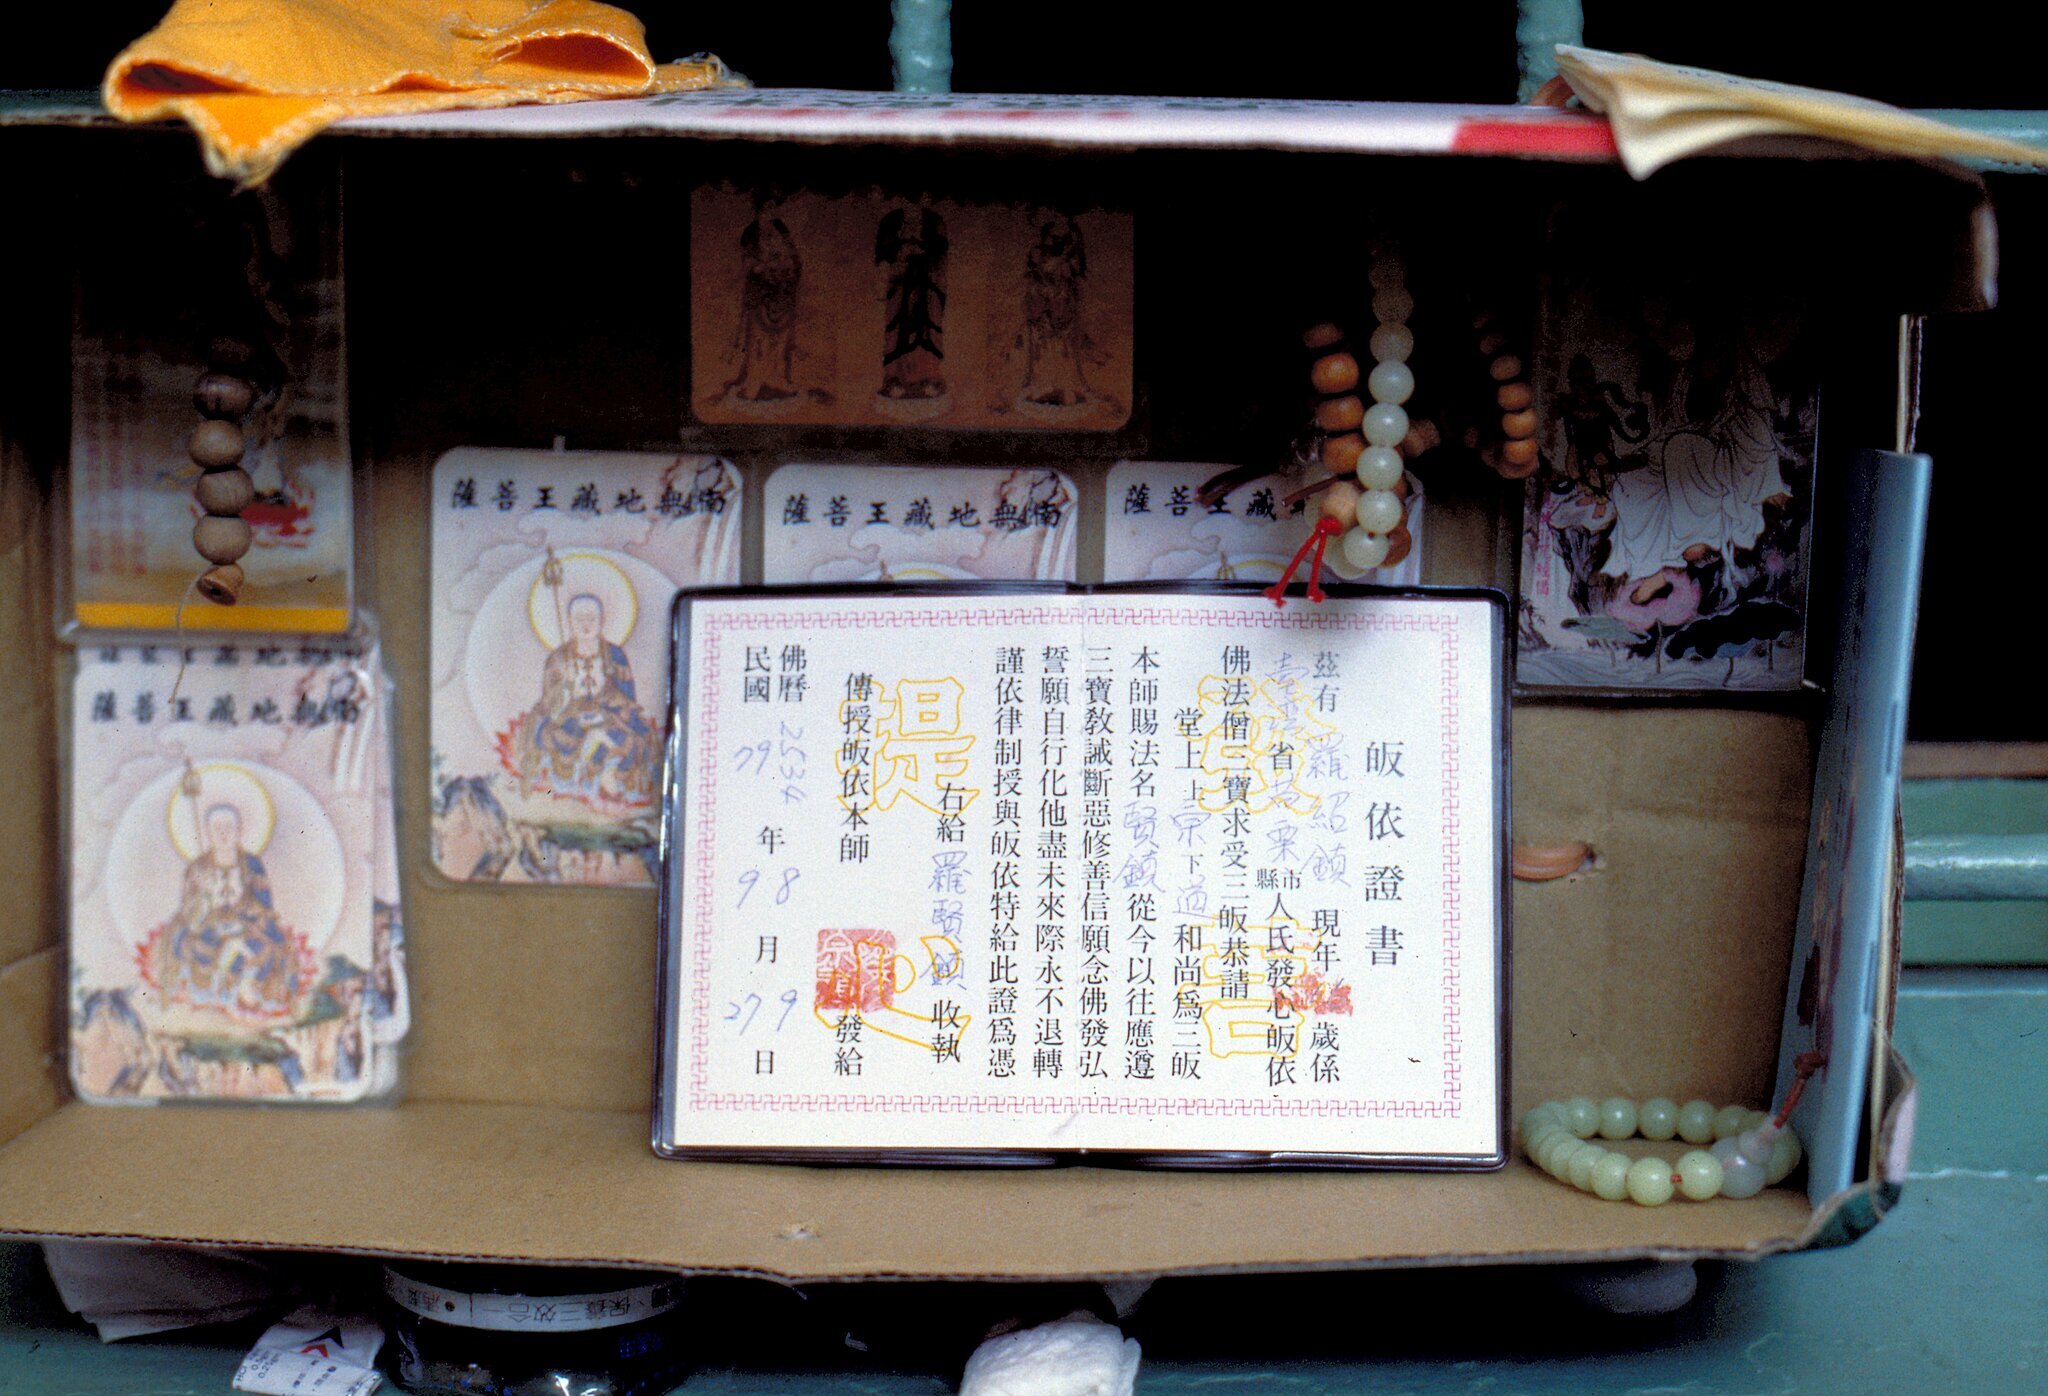 南無地藏王菩薩
南無地藏王菩薩
王藏菩薩
南無地藏王菩薩
皈依證書
茲有 羅紹鎮 現年 歲係
臺灣省苗栗縣市人氏發心皈依
佛法僧三寶求受三皈恭請
堂上上宗下迺和尚為三皈
本師賜法名賢鎮從今以往應遵
三寶教誡斷惡修善信願念佛發弘
誓願自行化他盡未來際永不退轉
謹依律制授與皈依特給此證為憑
右給羅賢鎮收執
傳授皈依本師 發給
佛曆2534年8月9日
民國79 9 27
發菩提心